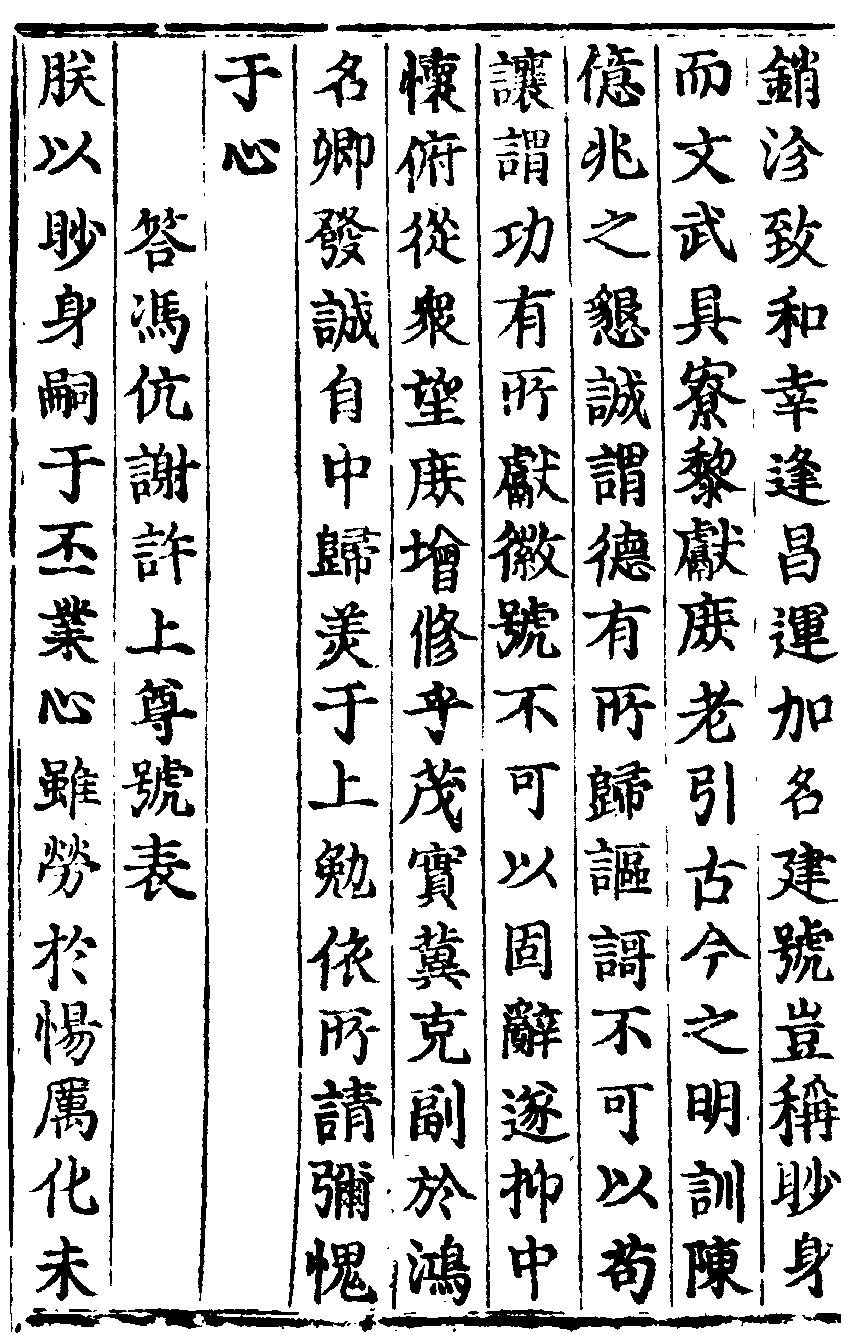 銷沴致和幸逢昌運加名建號豈稱眇身
而文武具寮黎獻庶老引古今之明訓陳
億兆之懇誠謂德有所歸謳謌不可以苟
讓謂功有所獻徽號不可以固辭遂抑中
懷俯從衆望庶增修乎茂實冀克副於鴻
名卿發誠自中歸羙于上勉依所請彌愧
于心
荅馮伉謝許上尊號表
朕以眇身嗣于丕業心雖勞於惕厲化未